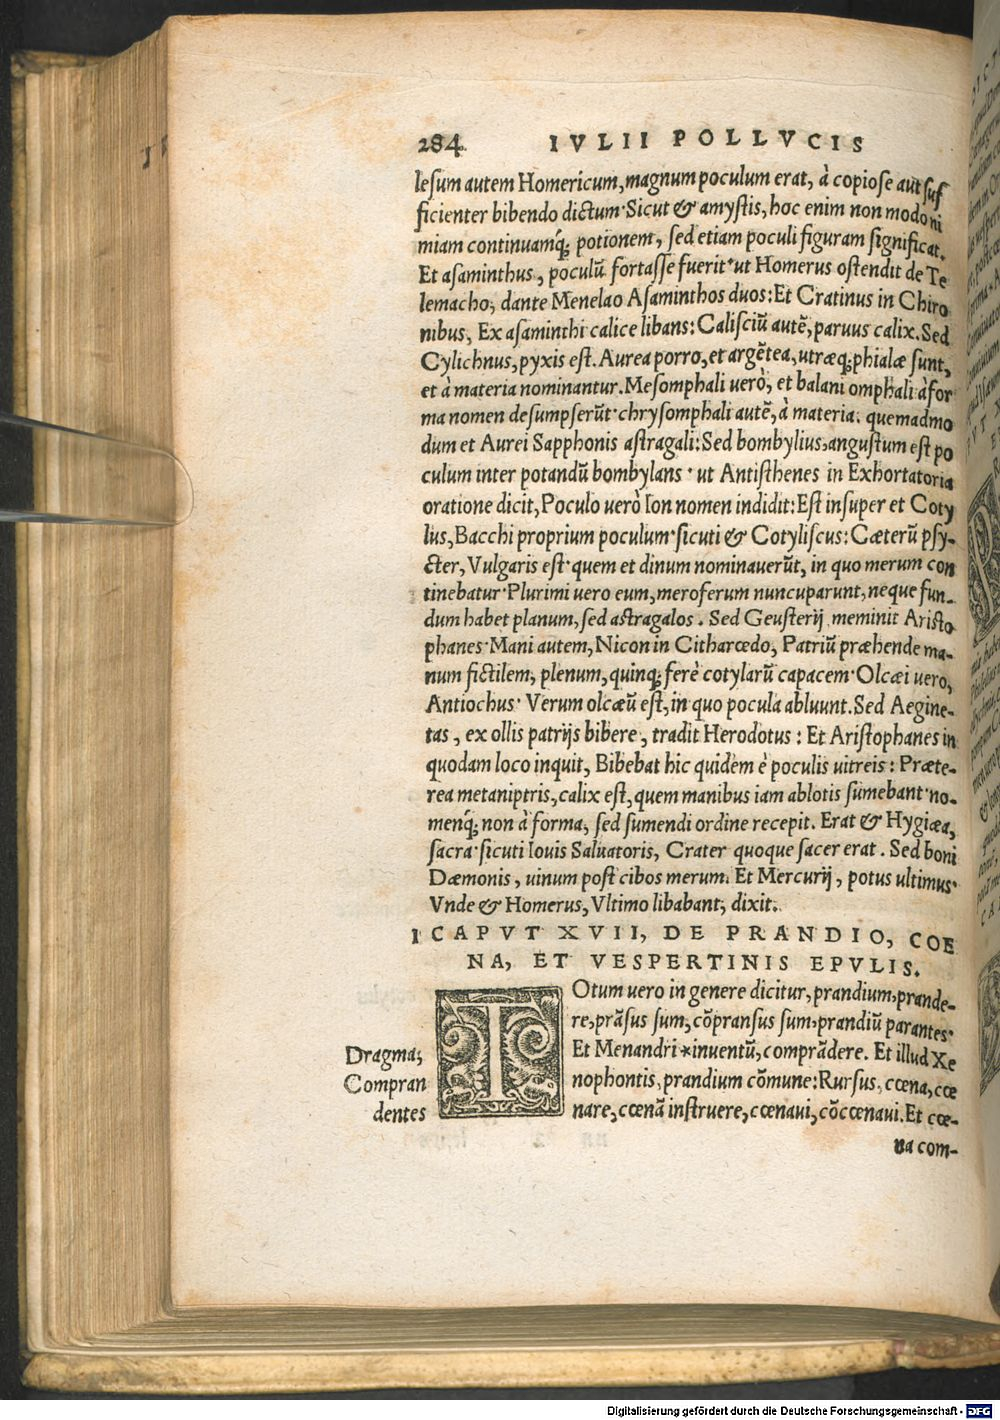 284 IVLII POLLVCIS
leſum autem Homericum, magnum poculum erat, à copioſe aut ſuf
ficienter bibendo dictum· Sicut & amyſtis, hoc enim non modo ni
miam continuamq́; potionem, ſed etiam poculi figuram ſignificat.
Et aſaminthus, poculũ fortaſſe fuerit· ut Homerus oſtendit de Te
lemacho, dante Menelao Aſaminthos duos: Et Cratinus in Chiro
nibus, Ex aſaminthi calice libans: Caliſciũ autẽ, paruus calix. Sed
Cylichnus, pyxis eſt. Aurea porro, et argẽtea, utræq; phialæ ſunt,
et à materia nominantur. Meſomphali uerò, et balani omphali à for
ma nomen deſumpſerũt· chryſomphali autẽ, à materia. quemadmo
dum et Aurei Sapphonis aſtragali: Sed bombylius, anguſtum eſt po
culum inter potandũ bombylans· ut Antiſthenes in Exhortatoria
oratione dicit, Poculo uerò Ion nomen indidit: Eſt inſuper et Coty
lus, Bacchi proprium poculum· ſicuti & Cotyliſcus: Cæterũ pſy-
cter, Vulgaris eſt· quem et dinum nominauerũt, in quo merum con
tinebatur· Plurimi uero eum, meroferum nuncuparunt, neque fun-
dum habet planum, ſed astragalos. Sed Geuſterij meminit Ariſto
phanes· Mani autem, Nicon in Citharœdo, Patriũ præhende ma-
num fictilem, plenum, quinq; ferè cotylarũ capacem· Olcæi uero,
Antiochus· Verum olcæũ eſt, in quo pocula abluunt. Sed Aegine-
tas, ex ollis patrijs bibere, tradit Herodotus: Et Ariſtophanes in
quodam loco inquit, Bibebat hic quidem è poculis uitreis: Præte-
rea metaniptris, calix eſt, quem manibus iam ablotis ſumebant· no-
menq́; non à forma, ſed ſumendi ordine recepit. Erat & Hygiæa,
ſacra· ſicuti Iouis Saluatoris, Crater quoque ſacer erat. Sed boni
Dæmonis, uinum poſt cibos merum. Et Mercurij, potus ultimus·
Vnde & Homerus, Vltimo libabant, dixit.
1 CAPVT XVII, DE PRANDIO, COE
NA, ET VESPERTINIS EPVLIS.
TOtum uero in genere dicitur, prandium, prande-
re, prãſus ſum, cõpranſus ſum, prandiũ parantes·
Et Menandri * inuentũ, comprãdere. Et illud Xe
nophontis, prandium cõmune: Rurſus, cœna, cœ
nare, cœnã inſtruere, cœnaui, cõcœnaui. Et cœ-
na com-
Dragma,
Compran
dentes
Digitalisierung gefördert durch die Deutsche Forschungsgemeinschaft - DFG